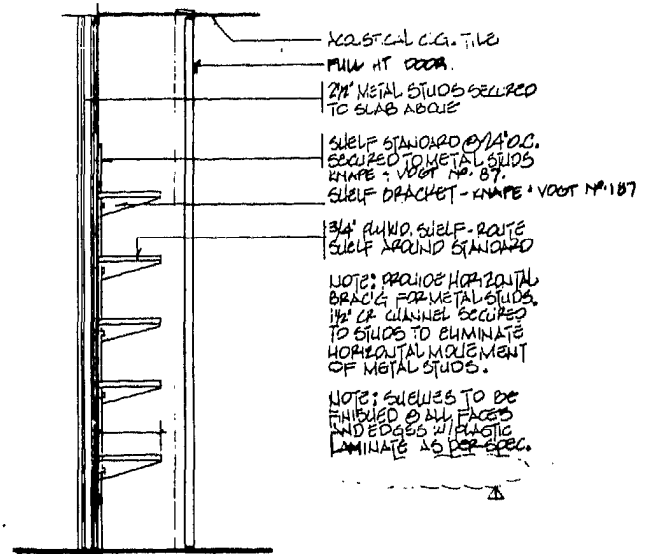 ACOUSTICAL CLG. TILE
FULL HT DOOR.
2 1/2" METAL STUDS SECURED
TO SLAB ABOVE
SHELF STANDARD @ 24" O.C.
SECURED TO METAL STUDS
KNAPE + VOGT Nº. 87.
SHELF BRACKET - KNAPE + VOGT Nº. 187
3/4" PLYWD. SHELF - ROUTE
SHELF AROUND STANDARD
NOTE: PROVIDE HORIZONTAL
BRAC'G FOR METAL STUDS.
1 1/2" CR CHANNEL SECURED
TO STUDS TO ELIMINATE
HORIZONTAL MOVEMENT
OF METAL STUDS.
NOTE: SHELVES TO BE
FINISHED @ ALL FACES
AND EDGES W/PLASTIC
LAMINATE AS PER SPEC.